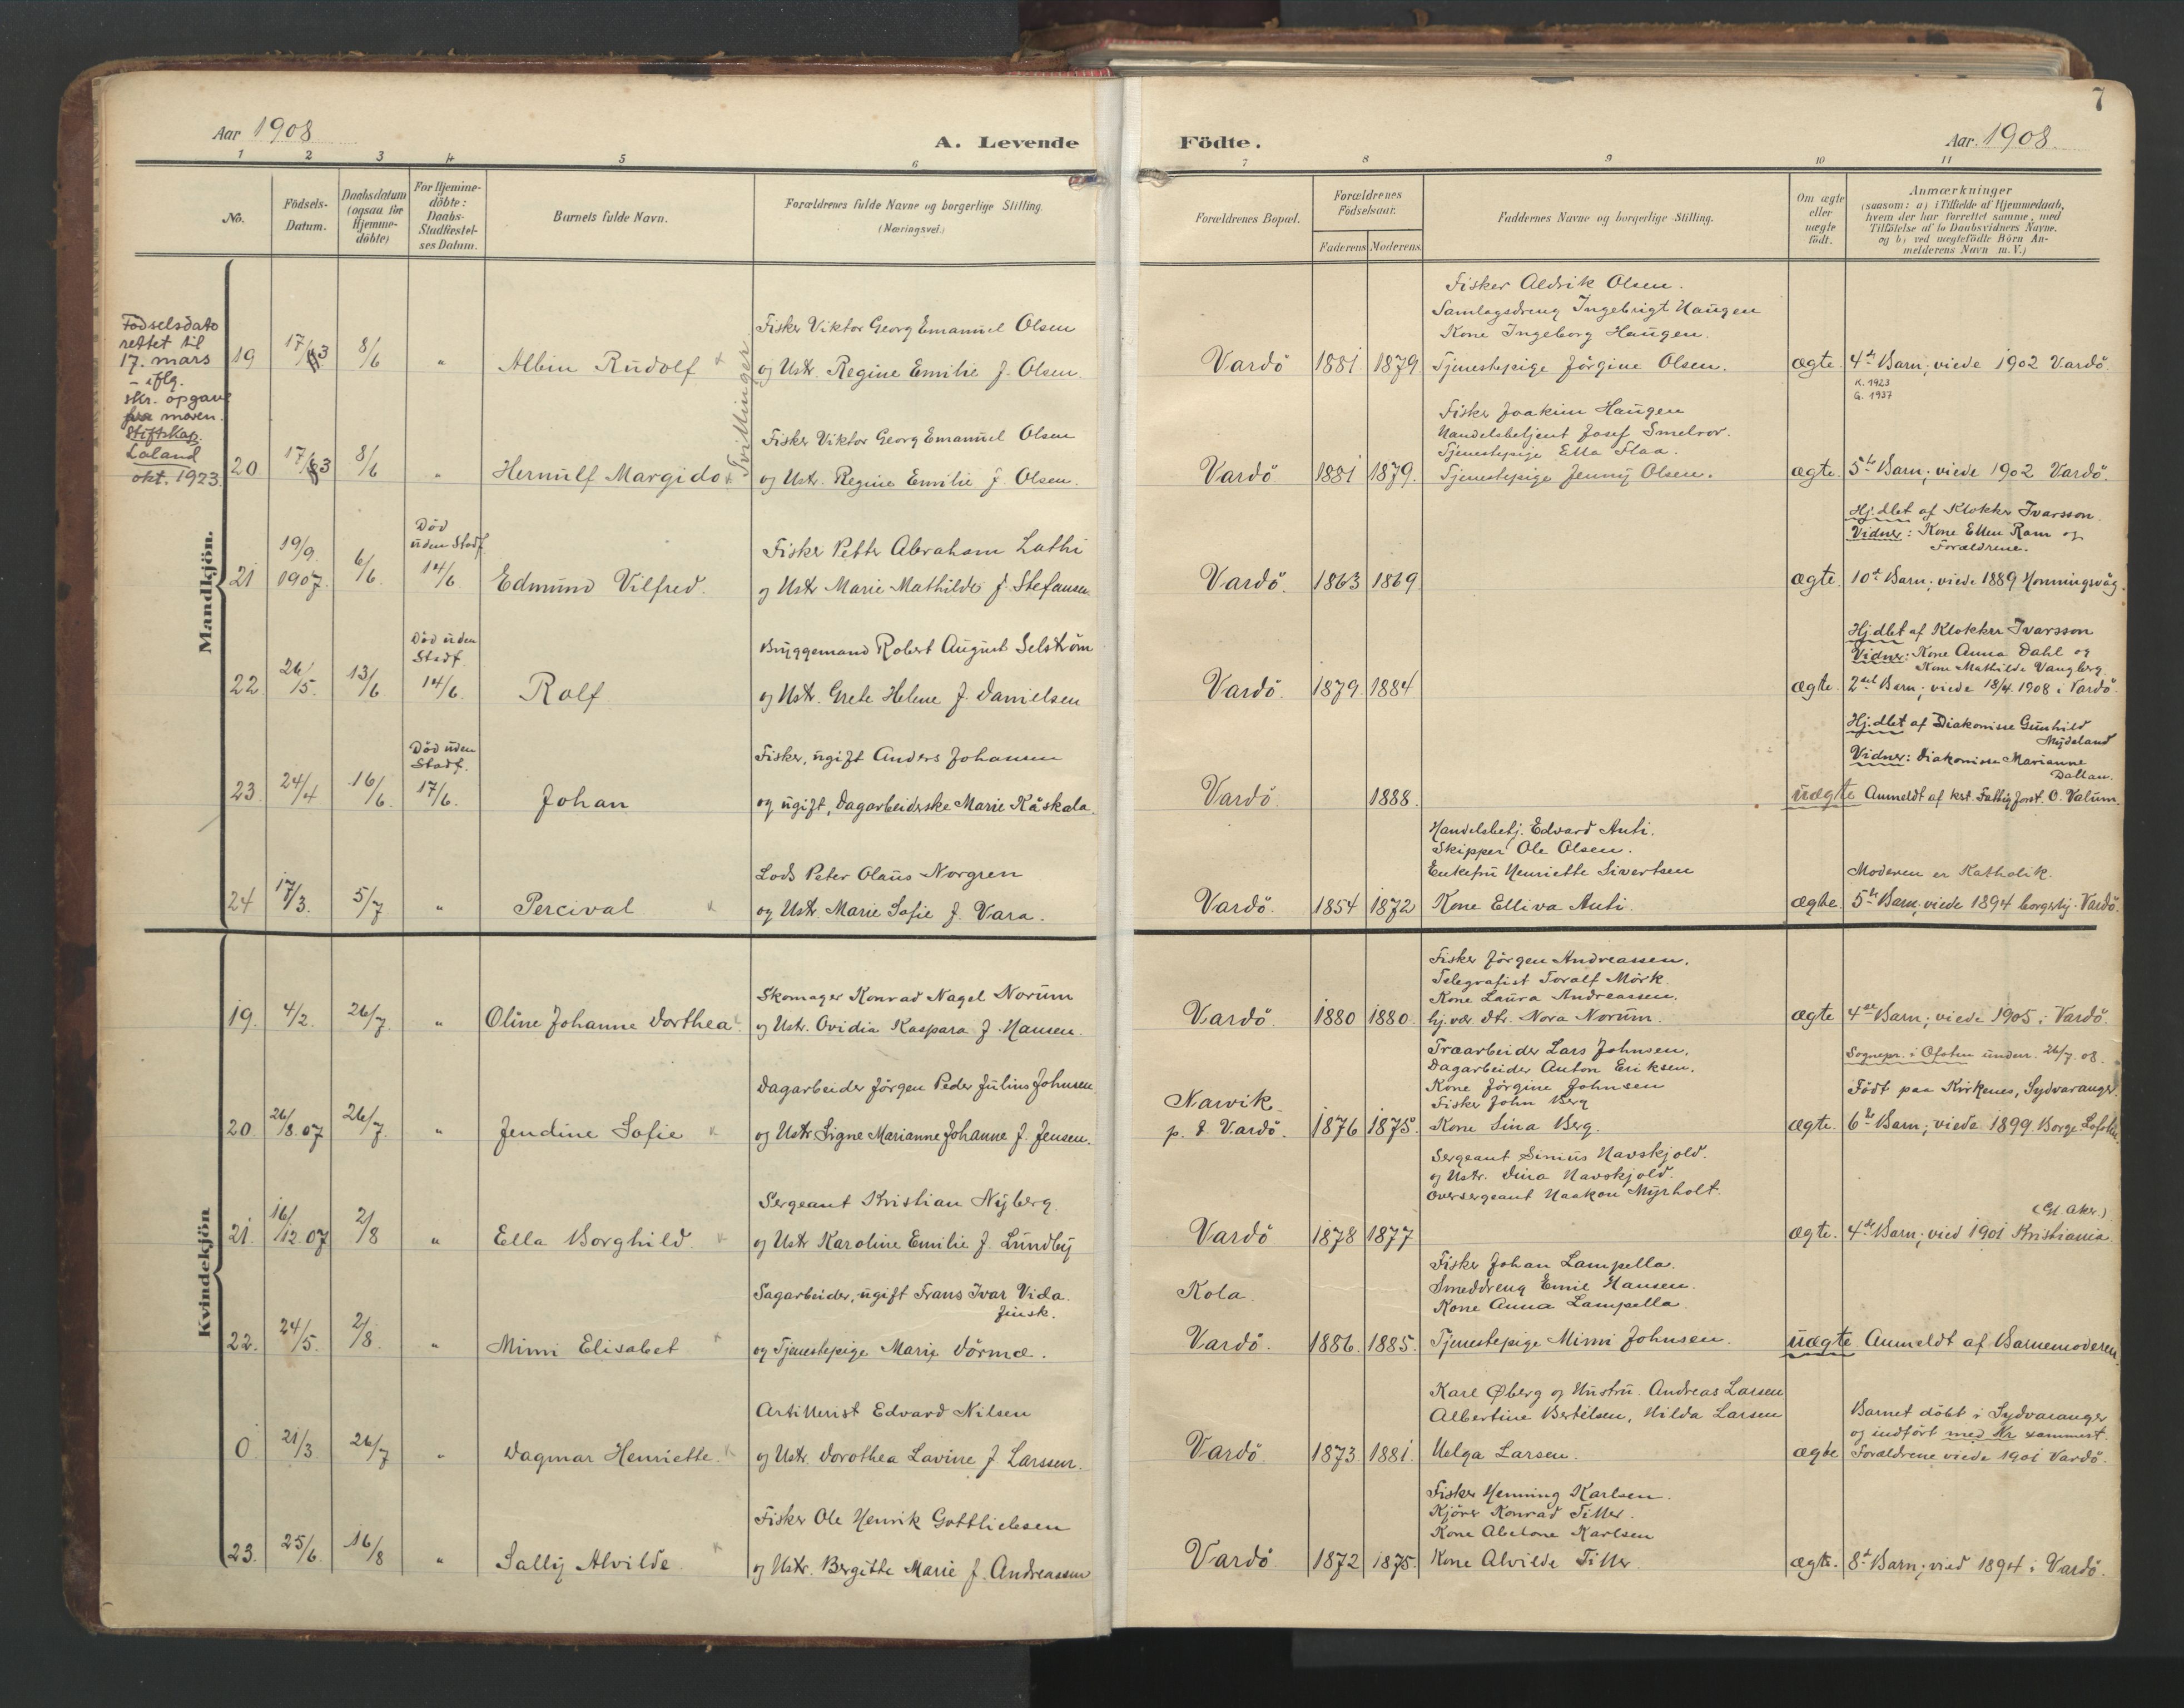 7
Aar 1908
A. Levende Födte.
Aar. 1908
1 2 3 4 5 6 7 8 9 10 11
No.
Födsels-
Datum.
Daabsdatum
(ogsaa for
Hjemme-
döbte)
For Hjemme-
döbte:
Daabs-
Stadfæstel-
ses Datum.
Barnets fulde Navn.
Forældrenes fulde Navne og borgerlige Stilling.
(Næringsvei.)
Forældrenes Bopæl.
Forældrenes
Födselsaar.
Faderens Moderens
Faddernes Navne og borgerlige Stilling.
Om ægte
eller
uægte
födt.
Anmærkninger
(saasom: a) i Tilfælde af Hjemmedaab,
hvem der har forrettet samme, med
Tilföielse af to Daabsvidners Navne.
og b) ved uægtefödte Börn An-
melderens Navn m. V.)
Mandkjön.
Födselsdato
rettet til
17. mars
- iflg.
skr. opgave
fra moren.
Stiftskap.
Laland
okt. 1923
Tvillinger
19 17/3 8/6 " Albin Rudolf
Fisker Viktor Georg Emanuel Olsen
og Ustr. Regine Emilie f. Olsen.
Vardö 1881 1879
Fisker Aldrik Olsen.
Samlagsdreng Ingebrigt Haugen
Kone Ingeborg Haugen.
Tjenestepige Jörgine Olsen.
ægte. 4de Barn; viede 1902 Vardö.
K. 1923
G. 1937
20 17/3 8/6 " Hernulf Margido
Fisker Viktor Georg Emanuel Olsen
og Ustr. Regine Emilie f. Olsen.
Vardö 1881 1879.
Fisker Joakim Haugen
Handelsbetjent Josef Smelror.
Tjenestepige Etta Flaa.
Tjenestepige Jenny Olsen.
ægte. 5te Barn; viede 1902 Vardö.
21 19/9. 1907. 6/6.
Död
uden Stadf.
14/6
Edmund Vilfred.
Fisker Petter Abraham Lathi
og Ustr Marie Mathilde f. Stefansen
Vardö. 1863 1869
ægte.
Hj.dbt af Klokker Ivarsson.
Vidner: Kone Ellen Ram og
Forældrene.
10de Barn; viede 1889 Honningsvåg.
22. 26/5. 13/6
Död uden
Stadf.
14/6.
Rolf
Bryggemand Robert August Selström
og Ustr. Grete Helene f. Danielsen
Vardö. 1879. 1884
ægte.
Hj.dbt af Klokker Ivarsson
Vidner: Kone Anna Dahl og
Kone Mathilde Vangberg.
2det Barn; viede 18/4. 1908 i Vardö.
23. 24/4 16/6.
Död uden
Stadf.
17/6.
Johan
Fisker, ugift Anders Johansen
og ugift, Dagarbeiderske Marie Kåskala.
Vardö. 1888.
uægte
Hj.dbt af Diakonisse Gunhild
Mydeland
Vidner: Diakonisse Marianne
Dalland.
Anmeldt af kst. Fattigforst. O. Valum.
24 17/3. 5/7 " Percival
Lods Peter Olaus Norgren
og Ustr. Marie Sofie f. Vara.
Vardö. 1854 1872
Handelsbetj. Edvard Anti.
Skipper Ole Olsen.
Enkefru Henriette Sivertsen
Kone Elliva Anti.
ægte.
Moderen er Katholik.
5te Barn; viede 1894 borgerlig. Vardö.
Kvindekjön
19. 4/2. 26/7 " Oline Johanne Dorthea
Skomager Konrad Nagel Norum
og Ustr. Ovidia Kaspara f. Hansen.
Vardö. 1880 1880.
Fisker Jörgen Andreassen.
Telegrafist Toralf Mörk.
Kone Laura Andreassen.
hj.vær. dtr. Nora Norum.
ægte 4de Barn; viede 1905 i Vardö.
20. 26/8. 07 26/7. " Jendine Sofie
Dagarbeider Jörgen Peder Julius Johnsen
og Ustr Signe Marianne Johanne f. Jensen.
Narvik
p. t. Vardö. 1876 1875.
Træarbeider Lars Johnsen.
Dagarbeider Anton Eriksen.
Kone Jörgine Johnsen
Fisker John Berg
Kone Lina Berg.
ægte.
Sognepr. i Ofoten underr. 26/7. 08.
Födt paa Kirkenes, Sydvaranger.
6te Barn; viede 1899. Borge. Lofoten.
21. 16/12. 07 2/8 " Ella Borghild.
Sergeant Kristian Nyberg.
og Ustr Karoline Emilie f. Lundby
Vardö 1878 1877
Sergeant Simus Havskjold.
og Ustr. Dina Havskjold.
Oversergeant Haakon Myrholt.
ægte.
(Gl. Aker.)
4de Barn; vied 1901 Kristiania.
22. 24/5. 2/8. " Mimi Elisabet
Sagarbeider, ugift Frans Ivar Vida.
finsk.
og Tjenestepige Marie Dörmæ.
Kola.
Vardö. 1886. 1885.
Fisker Johan Lampella.
Smeddreng Emil Hansen.
Kone Anna Lampella.
Tjenestepige Mimi Johnsen.
uægte Anmeldt af Barnemoderen.
0 21/3 26/7 " Dagmar Henriette.
Artillerist Edvard Nilsen
og Ustr. Dorothea Lavine f. Larssen.
Vardö 1873 1881.
Karl Øberg og Hustru. Andreas Larsen
Albertine Bertilsen, Hilda Larsen
Helga Larsen.
ægte
Barnet döbt i Sydvaranger
og indfört med Nr sammest.
Forældrene viede 1901 Vardö.
23. 25/6. 16/8 " Sally Alvilde
Fisker Ole Henrik Gottliebsen
og Ustr. Bergitte Marie f. Andreassen
Vardö 1872 1875.
Fisker Henning Karlsen.
Kjörer Konrad Tiller.
Kone Abelone Karlsen
Kone Alvilde Tiller.
ægte. 8de Barn; vied 1894 i Vardö.